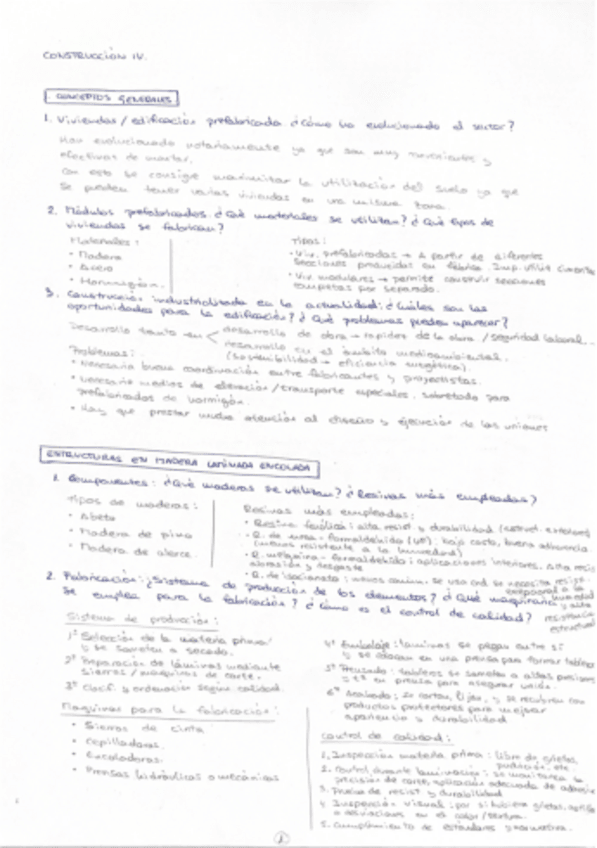 CONSTRUCCIÓN IV.
CONCEPTOS GENERALES
1. Viviendas / edificación prefabricada ¿Cómo ha evolucionado el sector?
Han evolucionado notoriamente ya que son muy convenientes y
efectivas de montar.
Con esto se consigue maximizar la utilización del suelo ya que
se pueden tener varias viviendas en una misma zona.
2. Módulos prefabricados. ¿Qué materiales se utilizan? ¿Qué tipos de
viviendas se fabrican?
Materiales:
• Madera
• Acero
• Hormigón.
Tipos:
• Viv. prefabricadas → A partir de diferentes
secciones producidas en fábrica. Imp. utiliz
• Viv modulares → permite construir secciones
completas por separado.
3. Construcción industrializada en la actualidad: ¿Cuáles son las
oportunidades para la edificación? ¿Qué problemas pueden aparecer?
Desarrollo tanto en < desarrollo de obra → rapidez de la obra / seguridad laboral
desarrollo en el ámbito medioambiental.
(sostenibilidad → eficiencia energética).
Problemas:
• Necesaria buena coordinación entre fabricantes y proyectistas.
• Necesario medios de elevación / transporte especiales, sobretodo para
prefabricados de hormigón.
• Hay que prestar mucha atención al diseño y ejecución de las uniones
ESTRUCTURAS EN MADERA LAMINADA ENCOLADA
1. Componentes: ¿Qué maderas se utilizan? ¿Resinas más empleadas?
Tipos de maderas:
• Abeto
• Madera de pino
• Madera de alerce.
Resinas más empleadas:
• Resina fenólica: alta resist y durabilidad
• R. de urea-formaldehído (UF): bajo costo, buena adherencia
(menos resistente a la humedad)
• R. melamina-formaldehído: aplicaciones interiores. Alta resis
abrasión y desgaste
• R. de isocianato: menos común. Se usa cnd se necesita resist.
2. Fabricación: ¿Sistema de producción de los elementos? ¿Qué maquinaria
se emplea para la fabricación? ¿Cómo es el control de calidad?
humedad
y alta
resistencia
estructural
Sistema de producción:
1º Selección de la materia prima
y se someten a secado.
2º Preparación de láminas mediante
sierras / máquinas de corte.
3º Clasif. y ordenación según calidad
4º Embalaje: láminas se pegan entre sí
y se colocan en una prensa para formar tablero
5º Prensado: tableros se someten a altas presiones
y tª en prensa para asegurar unión.
6º Acabado: se cortan, lijan, y se recubren con
productos protectores para mejorar
apariencia y durabilidad
Maquinas para la fabricación:
• Sierras de cinta
• Cepilladoras.
• Encoladoras.
• Prensas hidráulicas o mecánicas
Control de calidad:
1. Inspección materia prima: libre de grietas,
pudrición, etc.
2. Control durante laminación: se monitorea la
precisión de corte, aplicación adecuada de adhesivo
3. Prueba de resist y durabilidad
4. Inspección visual: por si hubiera grietas,
o desviaciones en el color / textura.
5. Cumplimiento de estándares y normativa.
1